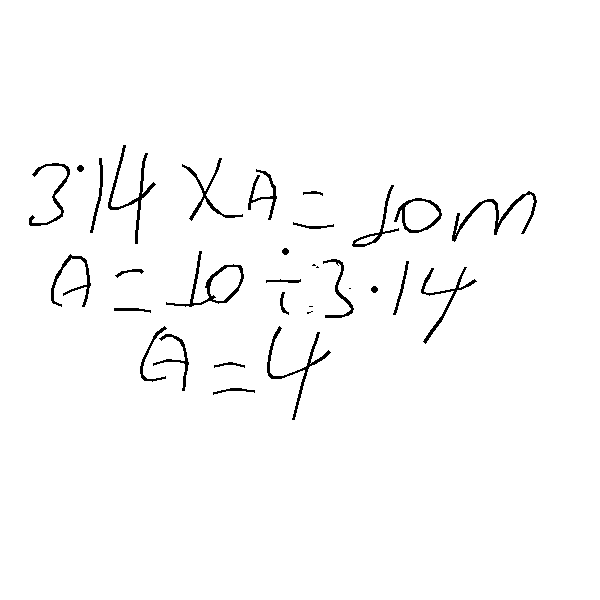 3.14 X A = 10m
A = 10 ÷ 3.14
A = 4